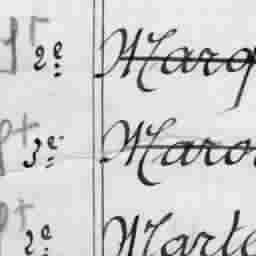 2e Marq
3e Maro
2e Marte